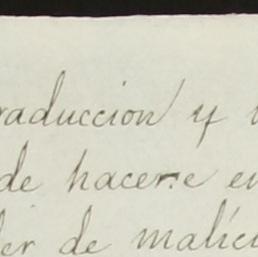 raduccion y
de hacerse en
der de malici